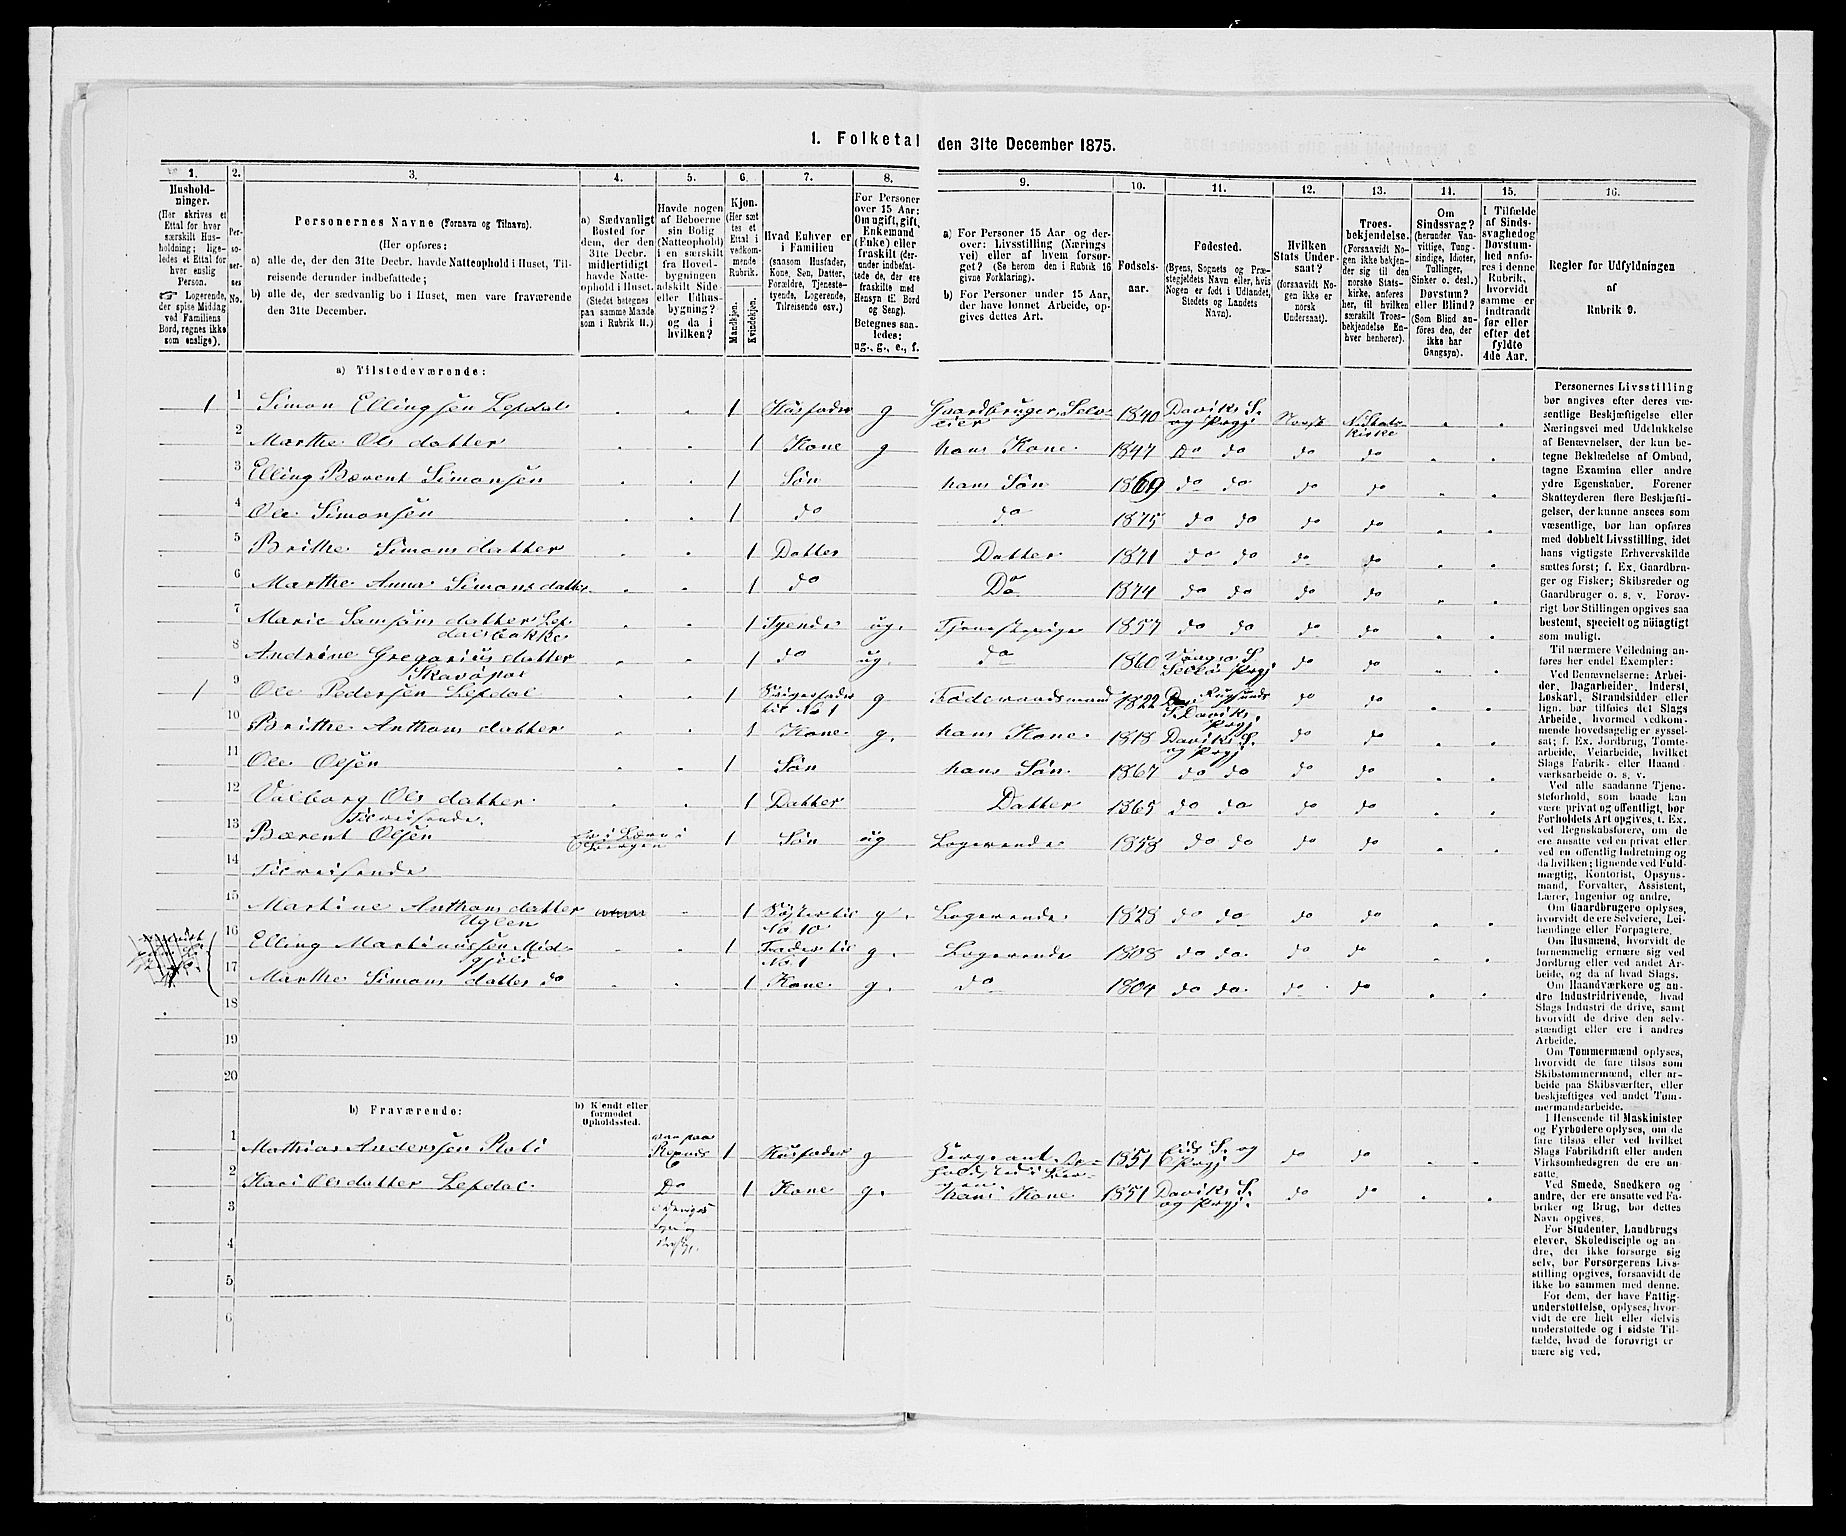 1. Folketal den 31te December 1875.
1. 2. 3. 4. 5. 6. 7. 8. 9. 10. 11. 12. 13. 14. 15. 16.
Hushold-
ninger.
(Her skrives et
Ettal for hver
særskilt Hus-
holdning; lige-
ledes et Ettal for
hver enslig
Person.
☞ Logerende,
der spise Middag
ved Familiens
Bord, regnes ikke
som enslige).
Per-
so-
ner-
nes
No.
Personernes Navne (Fornavn og Tilnavn).
(Her opføres:
a) alle de, der den 31te Decbr. havde Natteophold i Huset, Til-
reisende derunder indbefattede;
b) alle de, der sædvanlig bo i Huset, men vare fraværende
den 31te December.
a) Sædvanligt
Bosted for
dem, der den
31te Decbr.
midlertidigt
havde Natte-
ophold i Huset.
(Stedet betegnes
paa samme Maade
som i Rubrik 11.)
Havde nogen
af Beboerne
sin Bolig
(Natteophold)
i en særskilt
fra Hoved-
bygningen
adskilt Side-
eller Udhus-
bygning?
og da i
hvilken?
Kjøn.
(Her sæt-
tes et
Ettal i
vedkom-
mende
Rubrik.
Mandkjøn.
Kvindekjøn.
Hvad Enhver er
i Familien
(saasom Husfader,
Kone, Søn, Datter,
Forældre, Tjeneste-
tyende, Logerende,
Tilreisende osv.)
For Personer
over 15 Aar:
Om ugift, gift,
Enkemand
(Enke) eller
fraskilt (der-
under indbefat-
tede de, der ere
fraskilte med
Hensyn til Bord
og Seng).
Betegnes saa-
ledes:
ug., g., e., f.
a) For Personer 15 Aar og der-
over: Livsstilling (Nærings
vei) eller af hvem forsør-
get? (Se herom den i Rubrik 16
givne Forklaring).
b) For Personer under 15 Aar,
der have lønnet Arbeide, op-
gives dettes Art.
Fødsels-
aar.
Fødested.
(Byens, Sognets og Præ-
stegjeldets Navn eller, hvis
Nogen er født i Udlandet,
Stedets og Landets
Navn).
Hvilken
Stats Under-
saat?
(forsaavidt No-
gen ikke er
norsk
Undersaat).
Troes-
bekjendelse.
(Forsaavidt No-
gen ikke bekjen-
der sig til den
norske Stats-
kirke, anføres
her, til hvilken
særskilt Troes-
bekjendelse En-
hver henhører).
Om
Sindssvag?
(herunder Van-
vittige, Tung-
sindige, Idioter,
Tullinger,
Sinker o. desl.)
Døvstum?
eller Blind?
(Som Blind an-
føres den, der
ikke har
Gangsyn).
I Tilfælde
af Sinds-
svaghed og
Døvstum-
hed anfø-
res i denne
Rubrik,
hvorvidt
samme er
indtraadt
før eller
efter det
fyldte
4de Aar.
Regler for Udfyldningen
af
Rubrik 9.
a) Tilstedeværende:
1 1 Simon Ellingsen Lefdal 1 Husfader g Gaardbruger, Selv-
eier 1840 Daviks S. og Prgj Norsk N. Stats-
kirke
2 Marthe Olsdatter 1 Kone g hans Kone 1847 do do do do
3 Elling Bærent Simonsen 1 Søn hans Søn 1869 do do do do
4 Ole Simonsen 1 do do 1875 do do do do
5 Brithe Simonsdatter 1 Datter Datter 1871 do do do do
6 Marthe Anna Simonsdatter 1 do Do 1874 do do do do
7 Marie Samsonsdatter Lef-
dalsbakke 1 Tyende ug. Tjenestepige 1857 do do do do
8 Andrine Gregoriusdatter
Skavøpol 1 do ug. do 1860 Vaagsø S.
Selloe Prgj do do
1 9 Ole Pedersen Lefdal 1 Svigerfader
til No 1 g Føderaadsmand 1822 Rugsunds
S. Daviks
Prgj. do do
10 Brithe Anthonsdatter 1 Kone g. hans Kone 1818 Daviks S.
og Prgj. do do
11 Ole Olsen 1 Søn hans Søn 1867 do do do do
12 Valborg Olsdatter 1 Datter Datter 1865 do do do do
Tilreisende.
13 Bærent Olsen Er i Lære i
Bergen 1 Søn ug Logerende 1858 do do do do
14 Tilreisende
15 Martine Anthonsdatter
Uglen 1 Søster til
No 10 g. Logerende 1828 do do do do
16 Elling Martinussen Mid-
gjied 1 Fader til
No 1 g. Logerende 1808 do do do do
17 Marthe Simonsdatter do 1 Kone g. do 1804 do do do do
18
19
20
b) Fraværende:
b) Kjendt eller
formodet
Opholdssted.
1 Mathias Andersen 1 Husfader g Sergeant 1851 Eids S. og
Prgj do do
2 Kari Olsdatter Lefdal Do 1 Kone g. hans Kone 1851 Daviks S.
og Prgj. do do
3
4
5
6
Personernes Livsstilling
bør angives efter deres væ-
sentlige Beskjæftigelse eller
Næringsvei med Udelukkelse
af Benævnelser, der kun be-
tegne Beklædelse af Ombud,
tagne Examina eller andre
ydre Egenskaber. Forener
Skatteyderen flere Beskjæfti-
gelser, der kunne ansees som
væsentlige, bør han opføres
med dobbelt Livsstilling, idet
hans vigtigste Erhvervskilde
sættes først; f. Ex. Gaardbru-
ger og Fisker; Skibsreder og
Gaardbruger o. s. v. Forøv-
rigt bør Stillingen opgives saa
bestemt, specielt og nøiagtigt
som muligt.
Til nærmere Veiledning an-
føres her endel Exempler:
Ved Benævnelserne: Arbei-
der, Dagarbeider, Inderst,
Løskarl, Strandsidder eller
lign. bør tilføies det Slags
Arbeide, hvormed vedkom-
mende hovedsagelig er syssel-
sat; f. Ex. Jordbrug, Tomte-
arbeide, Veiarbeide, hvilket
Slags Fabrik- eller Haand
værksarbeide o. s. v.
Ved alle saadanne Tjene-
steforhold, som baade kan
være privat og offentligt, bør
Forholdets Art opgives, t. Ex.
ved Regnskabsførere, om de
ere ansatte ved en privat eller
ved en offentlig Indretning og
da hvilken; lignende ved Fuld-
mægtig, Kontorist, Opsyns-
mand, Forvalter, Assistent,
Lærer, Ingeniør og andre.
Om Gaardbrugere oplyses,
hvorvidt de ere Selveiere, Lei-
lændinge eller Forpagtere.
Om Husmænd, hvorvidt de
fornemmelig ernære sig ved
Jordbrug eller ved andet Ar-
beide, og da af hvad Slags.
Om Haandværkere og an-
dre Industridrivende, hvad
Slags Industri de drive, samt
hvorvidt de drive den selv-
stændigt eller ere i andres
Arbeide.
Om Tømmermænd oplyses,
hvorvidt de fare tilsøs som
Skibstømmermænd, eller ar-
beide paa Skibsværfter, eller
beskjæftiges ved andet Tøm-
mermandsarbeide.
I Henseende til Maskinister
og Fyrbødere oplyses, om de
fare tilsøs eller ved hvilket
Slags Fabrikdrift eller anden
Virksomhedsgren de ere an-
satte.
Ved Smede, Snedkere og
andre, der ere ansatte ved Fa-
briker og Brug, bør dettes
Navn opgives.
For Studenter, Landbrugs
elever, Skoledisciple og an-
dre, der ikke forsørge sig
selv, bør Forsørgerens Livs-
stilling opgives, forsaavidt de
ikke bo sammen med denne.
For dem, der have Fattig-
understøttelse, oplyses, hvor-
vidt de ere helt eller delvis
understøttede og i sidste Til-
fælde, hvad de forøvrigt er
nære sig ved.